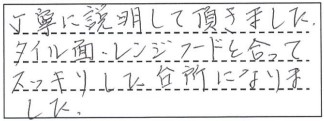 丁寧に説明して頂きました.
タイル面、レンジフードと合って
スッキリした台所になりま
した.